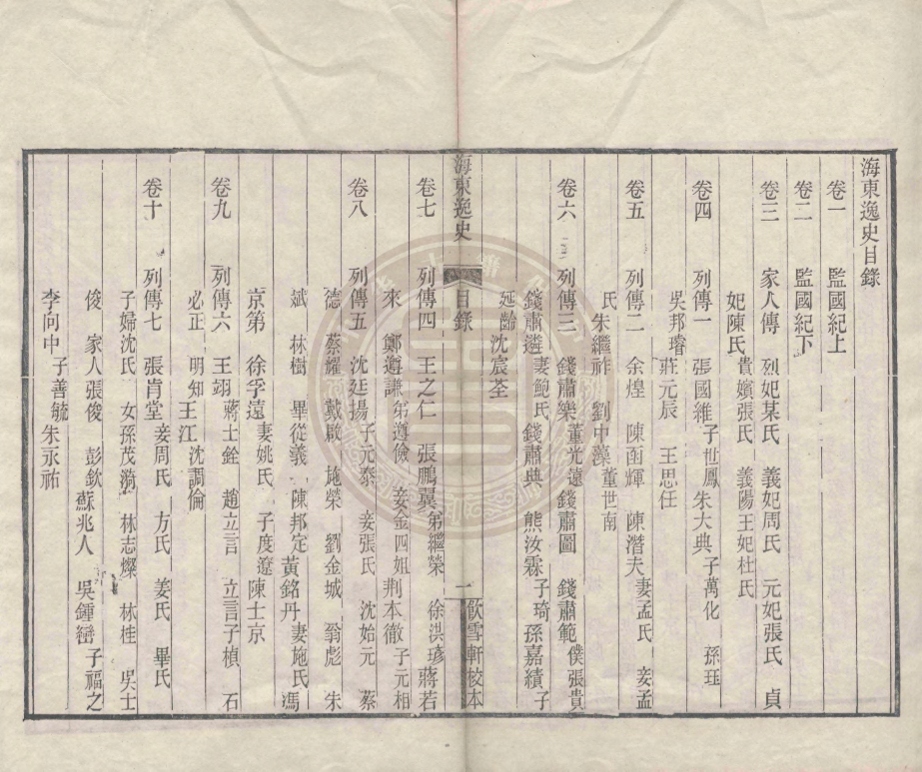 海東逸史目錄
卷一 監國紀上
卷二 監國紀下
卷三 家人傳 烈妃某氏 義妃周氏 元妃張氏 貞
妃陳氏 貴嬪張氏 義陽王妃杜氏
卷四 列傳一 張國維 子世鳳 朱大典 子萬化 孫珏
吳邦璿 莊元辰 王思任
卷五 列傳二 余煌 陳函輝 陳潛夫 妻孟氏 妾孟
氏 朱繼祚 劉中藻 董世南
卷六 列傳三 錢肅樂 董光遠 錢肅圖 錢肅範 僕張貴
錢肅遴 妻鮑氏 錢肅典 熊汝霖 子琦 孫嘉績 子
延齡 沈宸荃
海東逸史 目錄 一 飲雪軒校本
卷七 列傳四 王之仁 張鵬翼 弟繼榮 徐洪珍 蔣若
來 鄭遵謙 弟遵儉 妾金四姐 荆本徹 子元相
卷八 列傳五 沈廷揚 子元泰 妾張氏 沈始元 蔡
德 蔡耀 戴啟 施榮 劉金城 翁彪 朱
斌 林樹 畢從義 陳邦定 黃銘丹 妻施氏 馮
京第 徐孚遠 妻姚氏 子度遼 陳士京
卷九 列傳六 王翊 蔣士銓 趙立言 立言子楨 石
必正 明知 王江 沈調倫
卷十 列傳七 張肯堂 妾周氏 方氏 姜氏 畢氏
子婦沈氏 女孫茂漪 林志燦 林桂 吳士
俊 家人張俊 彭欽 蘇兆人 吳鍾巒 子福之
李向中 子善毓 朱永祐